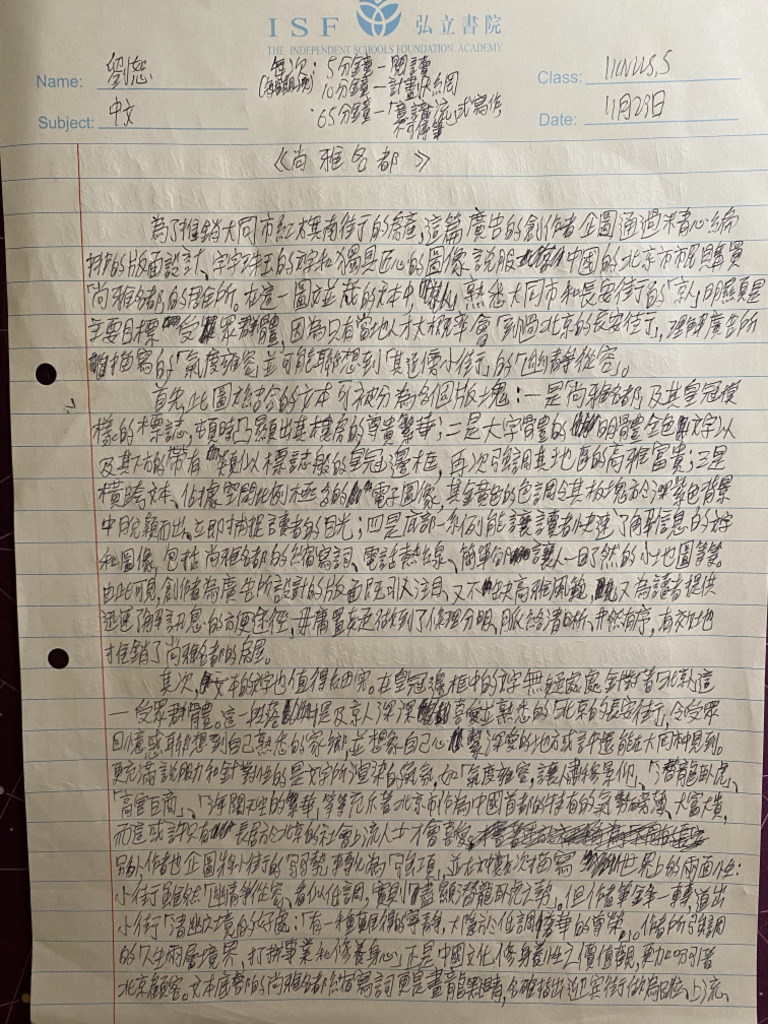 ISF 弘立書院
THE INDEPENDENT SCHOOLS FOUNDATION ACADEMY
Name: 劉
Subject: 中文
每次: 5分鐘—閱讀
10分鐘—計劃
65分鐘—「意識流」式寫作
不可停筆
Class:
Date: 11月23日
《尚雅名都》
為了推銷大同市紅旗南街的房產,這篇廣告的創作者企圖通過精心編
排的版面設計、字字珠玉的文字和獨具匠心的圖像說服中國的北京市市民購買
「尚雅名都」的居所。在這一圖文並茂的文本中,熟悉大同市和長安街的「京人」明顯是
主要目標受眾群體,因為只有當地人才大概率會到過北京的長安街,理解廣告所
描寫的「氣度雍容」並可能聯想到「其近傍小街」的「幽靜從容」。
首先,此圖文結合的文本可被分為四個版塊:一是尚雅名都及其皇冠模
樣的標誌,頓時凸顯出其樓房的尊貴繁華;二是大字體的明體金色文字以
及其下方的帶有類似標誌般的皇冠邊框,再次強調其地區的高雅富貴;三是
橫跨文本、佔據空間比例極多的電子圖像,其金黃的色調令其板塊於深紫色背景
中脫穎而出,立即捕捉讀者的目光;四是底部一系列能讓讀者快速了解信息的文字
和圖像,包括尚雅名都的縮寫詞、電話熱線、簡單讓人一目了然的小地圖等等。
由此可見,創作者為廣告所設計的版面既引人注目,又不缺高雅,又為讀者提供
迅速了解訊息的方便途徑,毋庸置疑做到了條理分明、脈絡清晰、井然有序,有效地
推銷了尚雅名都的房屋。
其次,文本的文字也值得細究。在皇冠邊框中的文字無疑處處針對著「北京」這
一受眾群體。這一段落提及京人深深喜愛並熟悉的北京的長安街,令受眾
回憶或聯想到自己熟悉的家鄉,並想像自己心繫深愛的地方或許還能在大同市見到。
更充滿說服力和針對性的是文字所渲染的氣氛,如「氣度雍容,讓人肅然景仰」、「潛龍臥虎」、
「高官巨商」、「海闊天空的繁華」等等充斥著北京市作為中國首都的特有的氣勢磅礴、大富大貴,
而這或許只有長居於北京的社會上流人士才會喜愛。
別,作者也企圖將小街的「弱勢」轉化為「強項」,並在此數次描寫世界上的兩面性:
小街雖然「幽靜從容、看似低調,實則盡顯潛龍臥虎之勢」。但作者筆鋒一轉道出
小街「清幽之境」的好處:「有一種真自得的尊靜,大隱於低調奢華的尊榮」。作者所強調
的「人生兩層境界,打拼事業和修養身心」正是中國文化修身養性之價值觀,更加吸引著
北京顧客。文本底部的尚雅名都縮寫詞更是畫龍點睛,名確指出迎賓街作為、上流、